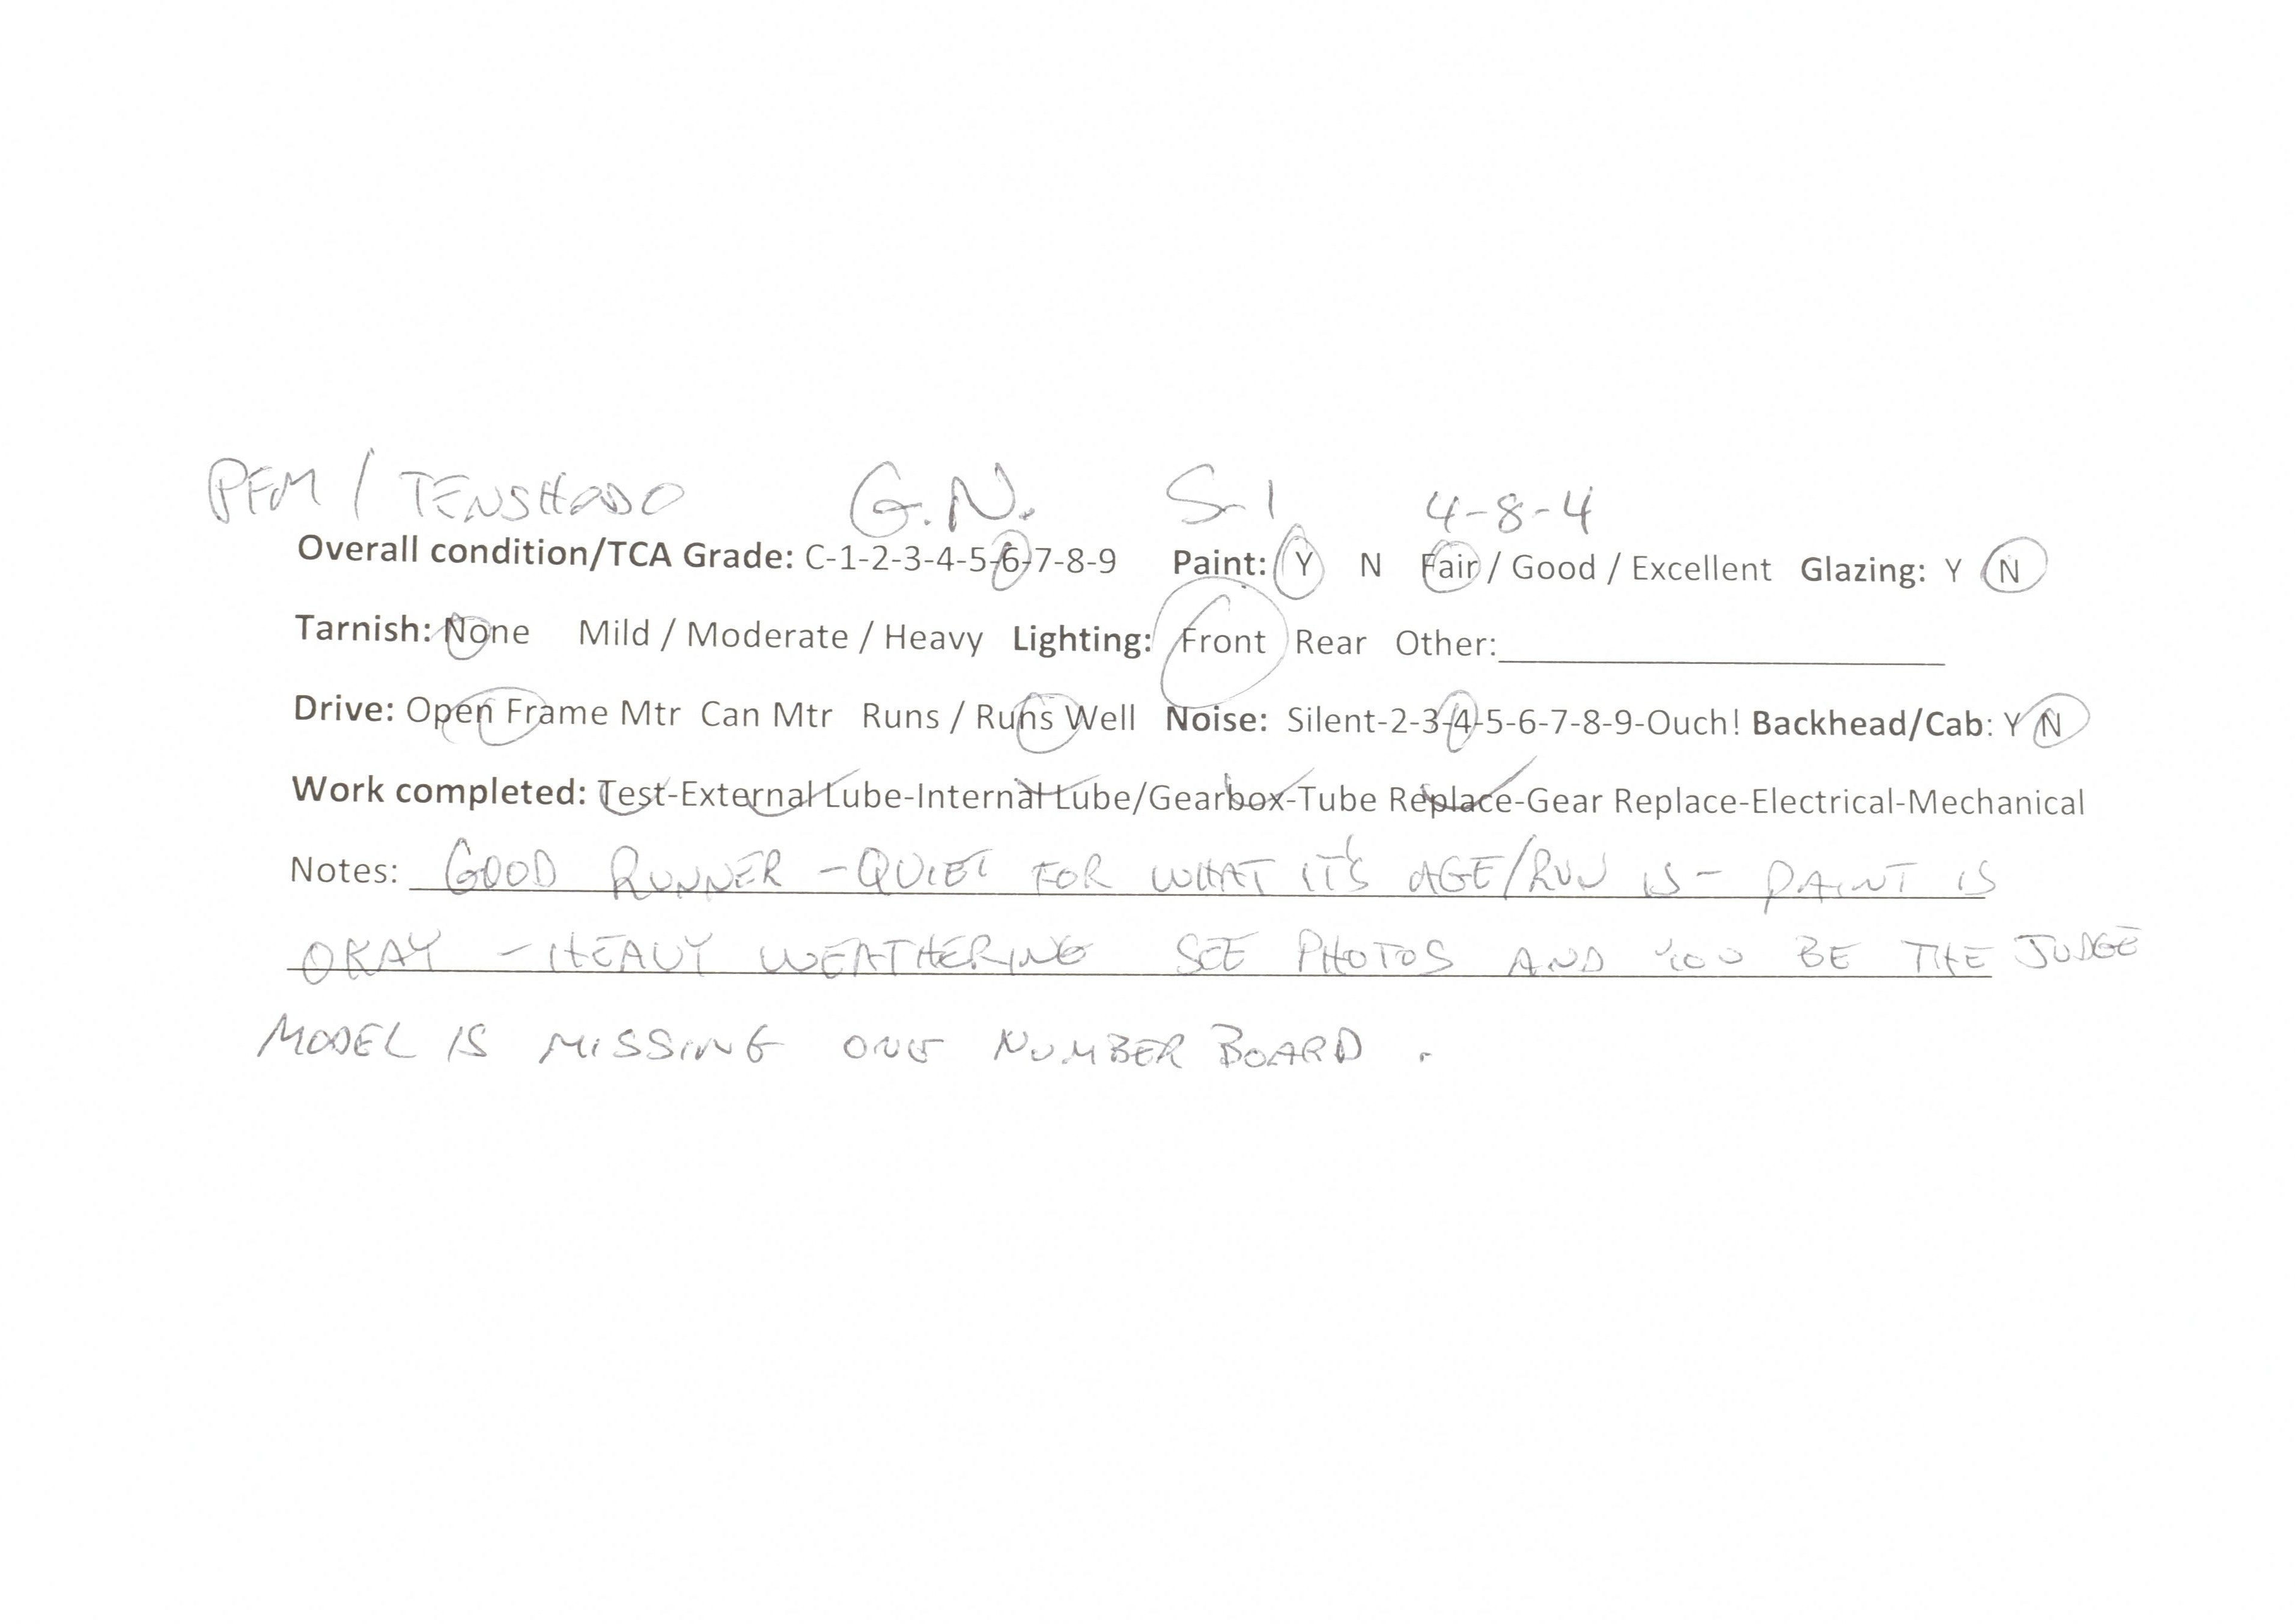 PFM / TENSHODO G.N. S-1 4-8-4
Overall condition/TCA Grade: C-1-2-3-4-5-6-7-8-9 Paint: Y N Fair / Good / Excellent Glazing: Y N
Tarnish: None Mild / Moderate / Heavy Lighting: Front Rear Other:
Drive: Open Frame Mtr Can Mtr Runs / Runs Well Noise: Silent-2-3-4-5-6-7-8-9-Ouch! Backhead/Cab: Y N
Work completed: Test-External Lube-Internal Lube/Gearbox-Tube Replace-Gear Replace-Electrical-Mechanical
Notes: GOOD RUNNER - QUIET FOR WHAT IT'S AGE/RUN IS - PAINT IS
OKAY - HEAVY WEATHERING SEE PHOTOS AND YOU BE THE JUDGE
MODEL IS MISSING ONE NUMBER BOARD.